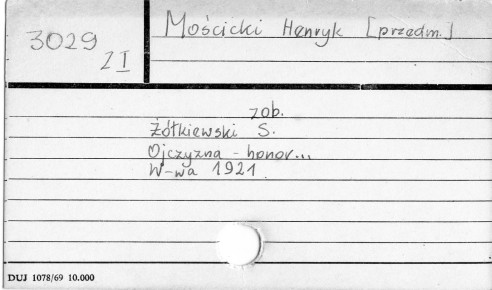 3029
Mościcki Henryk [przedm.]
2 I
zob.
Żółkiewski S.
Ojczyzna - honor...
W-wa 1921
DUJ 1078/69 10.000